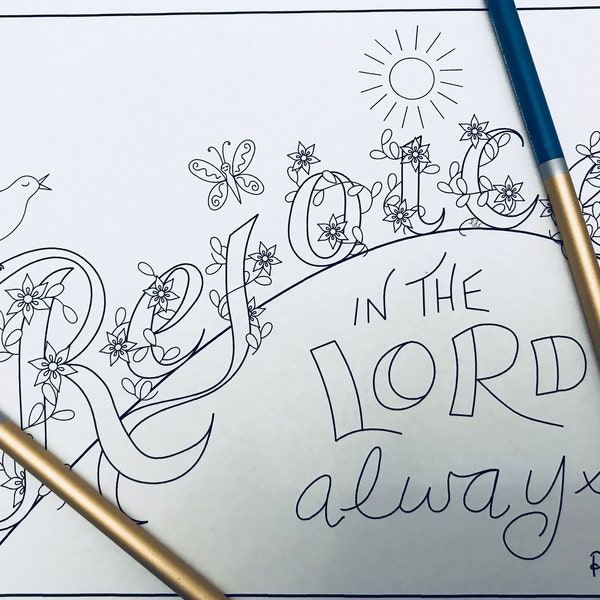 Rejoice
IN THE
LORD
always